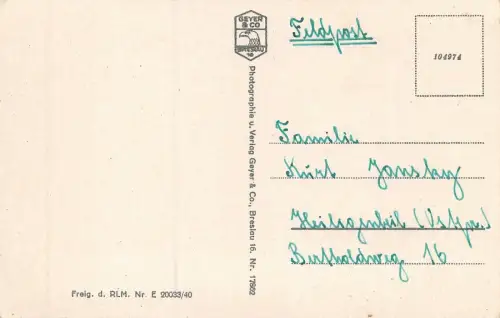 GEYER
& CO
BRESLAU
16
Feldpost
104974
Photographie u. Verlag Geyer & Co., Breslau 16. Nr. 17502
Familie
Kurt Jansky
Heiligenbeil (Ostpr.)
Bertholdweg 16
Freig. d. RLM. Nr. E 20033/40